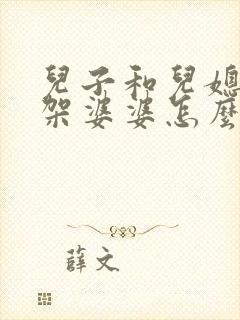 兒子和兒媳
架婆婆怎麼
薛文